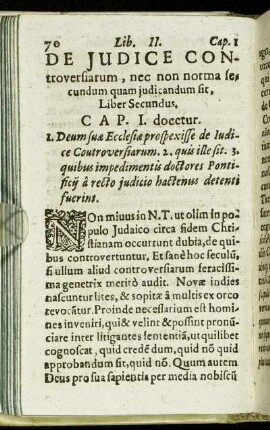 70 Lib. II. Cap. 1
DE JUDICE CON-
troversiarum, nec non norma se-
cundum quam judicandum sit,
Liber Secundus.
CAP. I. docetur.
1. Deum suæ Ecclesiæ prospexisse de Iudi-
ce Coutroversiarum. 2. quis ille sit. 3.
quibus impedimentis doctores Ponti-
ficij à recto judicio hactenus detenti
fuerint.
NOn miuus in N.T. ut olim in po-
pulo Judaico circa fidem Chri-
stianam occurrunt dubia, de qui-
bus controvertuntur. Et sanè hoc seculũ,
si ullum aliud controversiarum feracissi-
ma genetrix meritò audit. Novæ indies
nascuntur lites, & sopitæ à multis ex orco
revocãtur. Proinde necessarium est homi-
nes inveniri, qui & velint & possint pronũ-
ciare inter litigantes sententiã, ut quilibet
cognoscat, quid credẽdum, quid nõ quid
approbandum sit, quid nõ. Quum autem
Deus pro sua sapientia per media nobiscũ